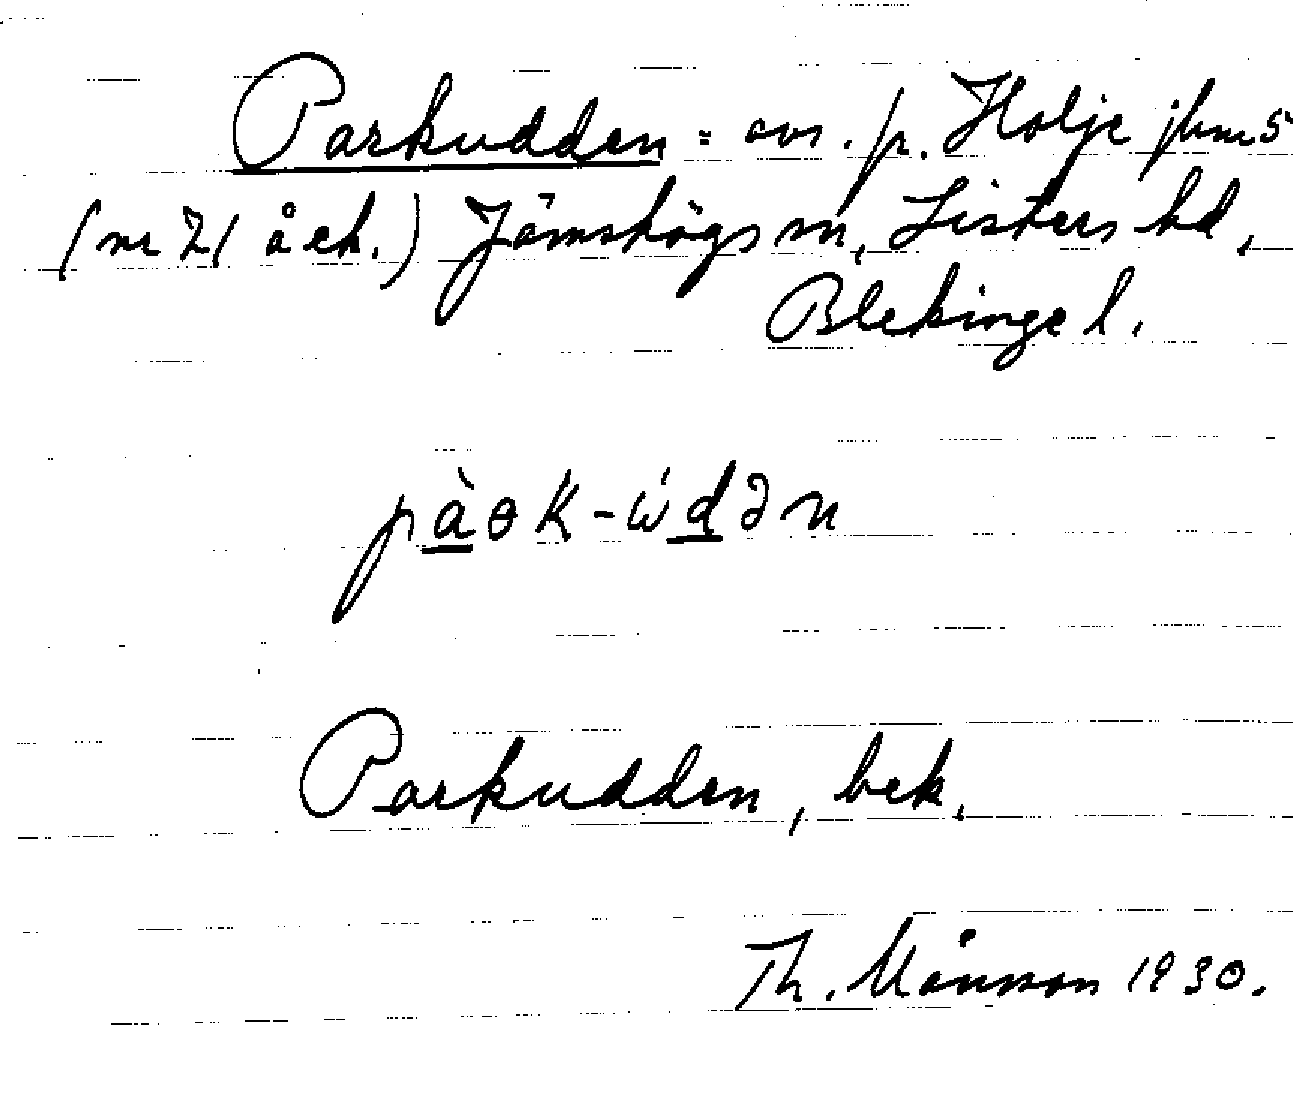 Parkudden = avs. p. Holje jbm 5
(nr 21 å ek.) Jämshögs sn, Listers hd,
Blekinge l.
pàɵk-ẃdən
Parkudden, bek.
Th. Månsson 1930.